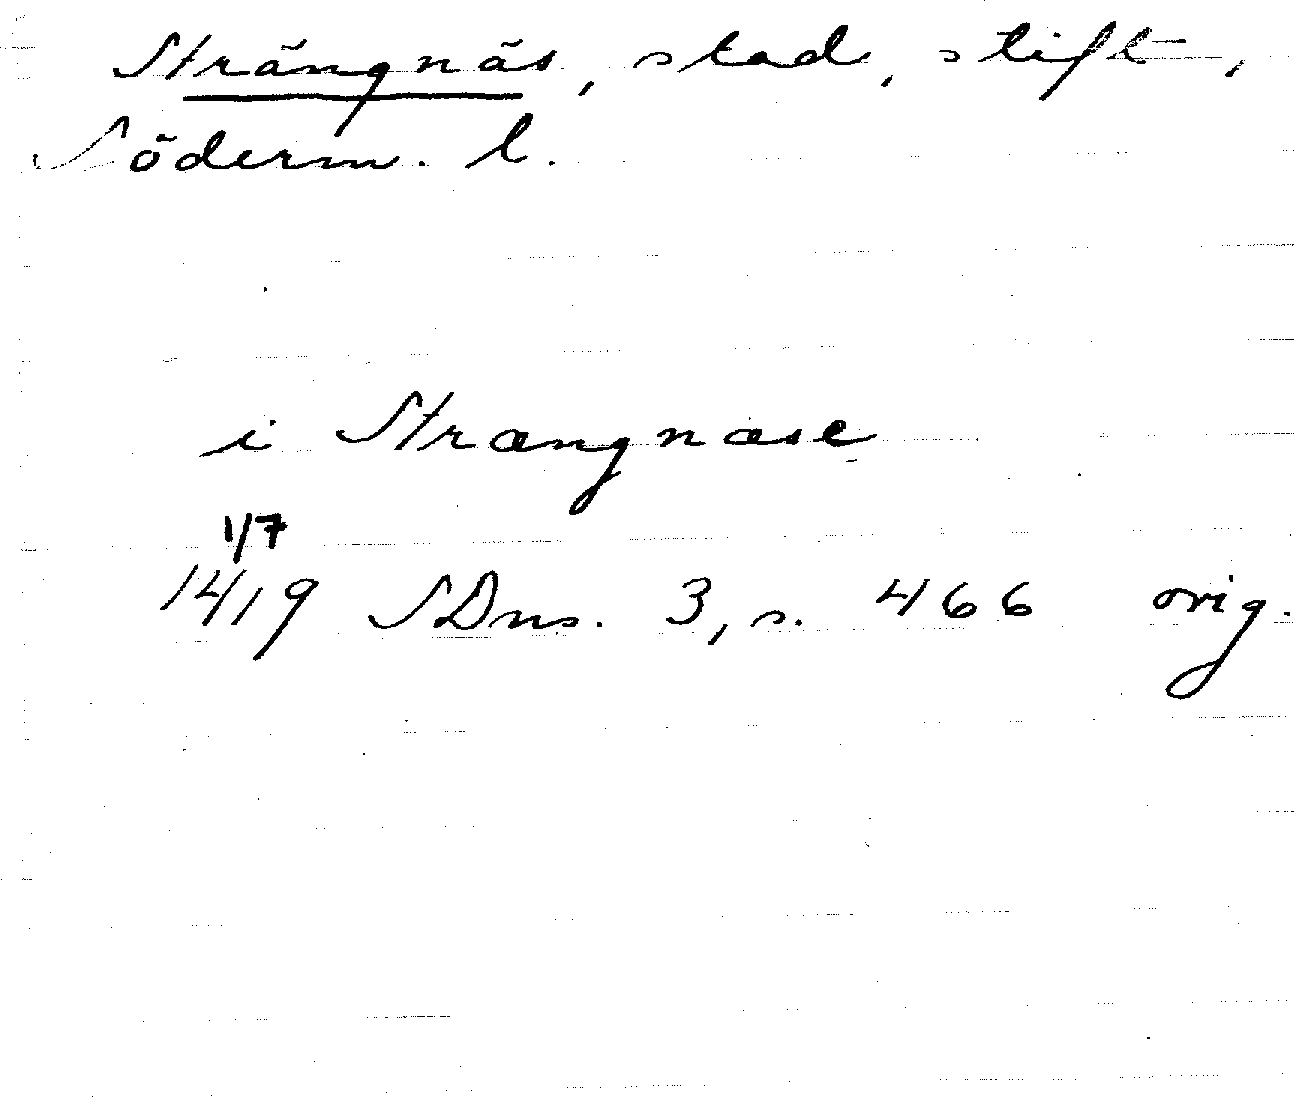 Strängnäs, stad, stift,
Söderm. l.
i Strængnæse
1/7
1419 SDns. 3, s. 466 orig.